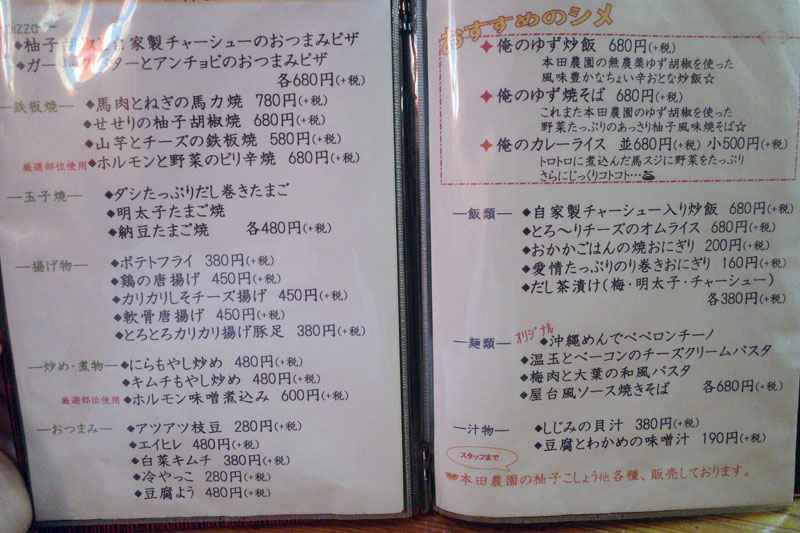 pizza
◆柚子胡椒と自家製チャーシューのおつまみピザ
◆ガーリックバターとアンチョビのおつまみピザ
各680円(+税)
―鉄板焼―
◆馬肉とねぎの馬力焼 780円(+税)
◆せせりの柚子胡椒焼 680円(+税)
◆山芋とチーズの鉄板焼 580円(+税)
厳選部位使用◆ホルモンと野菜のピリ辛焼 680円(+税)
―玉子焼―
◆ダシたっぷりだし巻きたまご
◆明太子たまご焼
◆納豆たまご焼 各480円(+税)
―揚げ物―
◆ポテトフライ 380円(+税)
◆鶏の唐揚げ 450円(+税)
◆カリカリしそチーズ揚げ 450円(+税)
◆軟骨唐揚げ 450円(+税)
◆とろとろカリカリ揚げ豚足 380円(+税)
―炒め・煮物―
◆にらもやし炒め 480円(+税)
◆キムチもやし炒め 480円(+税)
厳選部位使用◆ホルモン味噌煮込み 600円(+税)
―おつまみ―
◆アツアツ枝豆 280円(+税)
◆エイヒレ 480円(+税)
◆白菜キムチ 380円(+税)
◆冷やっこ 280円(+税)
◆豆腐よう 480円(+税)
おすすめのシメ
✦俺のゆず炒飯 680円(+税)
本田農園の無農薬ゆず胡椒を使った
風味豊かなちょい辛おとな炒飯☆
✦俺のゆず焼そば 680円(+税)
これまた本田農園のゆず胡椒を使った
野菜たっぷりのあっさり柚子風味焼そば☆
✦俺のカレーライス 並680円(+税) 小500円(+税)
トロトロに煮込んだ馬スジに野菜をたっぷり
さらにじっくりコトコト…
―飯類―
◆自家製チャーシュー入り炒飯 680円(+税)
◆とろ～りチーズのオムライス 680円(+税)
◆おかかごはんの焼おにぎり 200円(+税)
◆愛情たっぷりのり巻きおにぎり 160円(+税)
◆だし茶漬け(梅・明太子・チャーシュー)
各380円(+税)
―麺類―
オリジナル
◆沖縄めんでペペロンチーノ
◆温玉とベーコンのチーズクリームパスタ
◆梅肉と大葉の和風パスタ
◆屋台風ソース焼きそば 各680円(+税)
―汁物―
◆しじみの貝汁 380円(+税)
◆豆腐とわかめの味噌汁 190円(+税)
スタッフまで
本田農園の柚子こしょう他各種、販売しております。